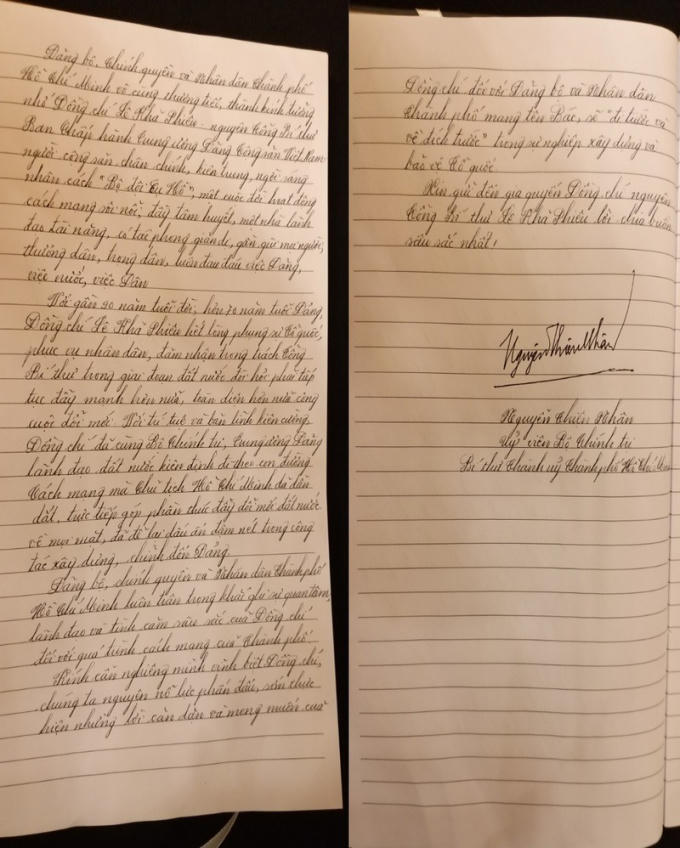 Đảng bộ, Chính quyền và Nhân dân Thành phố
Hồ Chí Minh vô cùng thương tiếc, thành kính tưởng
nhớ Đồng chí Lê Khả Phiêu - nguyên Tổng Bí thư
Ban Chấp hành Trung ương Đảng Cộng sản Việt Nam
người cộng sản chân chính, kiên trung, ngời sáng
nhân cách "Bộ đội Cụ Hồ", một cuộc đời hoạt động
cách mạng sôi nổi, đầy tâm huyết, một nhà lãnh
đạo tài năng, có tác phong giản dị, gần gũi mọi người,
thương dân, trọng dân, luôn đau đáu việc Đảng,
việc nước, việc Dân
Với gần 90 năm tuổi đời, hơn 70 năm tuổi Đảng,
Đồng chí Lê Khả Phiêu hết lòng phụng sự Tổ quốc,
phục vụ nhân dân, đảm nhận trọng trách Tổng
Bí thư trong giai đoạn đất nước đòi hỏi phải tiếp
tục đẩy mạnh hơn nữa, toàn diện hơn nữa công
cuộc đổi mới. Với trí tuệ và bản lĩnh kiên cường,
Đồng chí đã cùng Bộ Chính trị, Trung ương Đảng
lãnh đạo đất nước kiên định đi theo con đường
Cách mạng mà Chủ tịch Hồ Chí Minh đã dẫn
dắt, trực tiếp góp phần thúc đẩy đổi mới đất nước
về mọi mặt, đã để lại dấu ấn đậm nét trong công
tác xây dựng, chỉnh đốn Đảng
Đảng bộ, chính quyền và Nhân dân Thành phố
Hồ Chí Minh luôn trân trọng khắc ghi sự quan tâm,
lãnh đạo và tình cảm sâu sắc của Đồng chí
đối với quá trình cách mạng của Thành phố.
Kính cẩn nghiêng mình vĩnh biệt Đồng chí,
chúng ta nguyện nỗ lực phấn đấu, sớm thực
hiện những lời căn dặn và mong muốn của
Đồng chí đối với Đảng bộ và Nhân dân
Thành phố mang tên Bác, sẽ "đi trước và
về đích trước" trong sự nghiệp xây dựng và
bảo vệ Tổ quốc
Xin gửi đến gia quyến Đồng chí nguyên
Tổng Bí thư Lê Khả Phiêu lời chia buồn
sâu sắc nhất!
Nguyễn Thiện Nhân
Nguyễn Thiện Nhân
Uỷ viên Bộ Chính trị
Bí thư Thành uỷ Thành phố Hồ Chí Minh